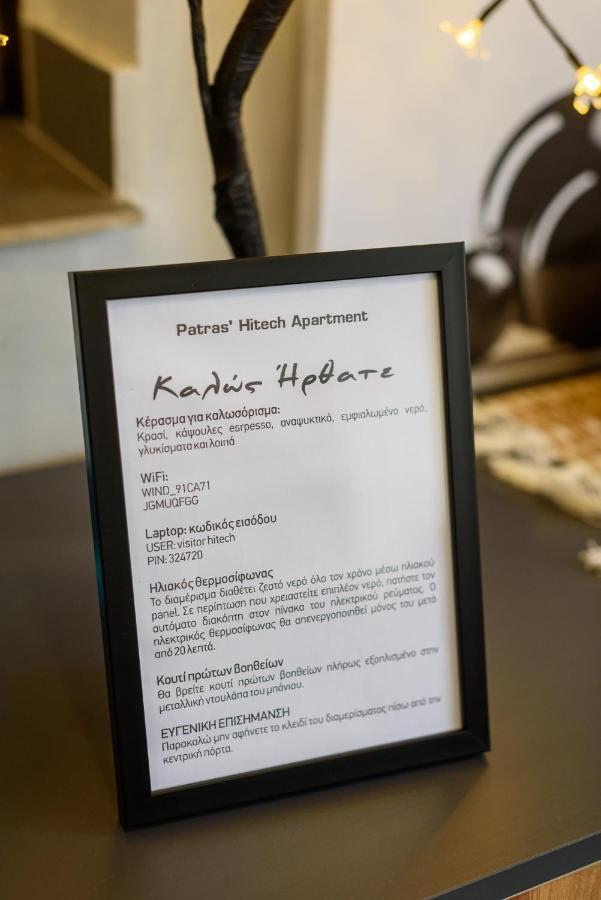 Patras' Hitech Apartment
Καλώς Ήρθατε
Κέρασμα για καλωσόρισμα:
Κρασί, κάψουλες esrpesso, αναψυκτικά, εμφιαλωμένο νερό,
γλυκίσματα και λοιπά
WiFi:
WIND_91CA71
JGMUQFGG
Laptop: κωδικός εισόδου
USER: visitor hitech
PIN: 324720
Ηλιακός θερμοσίφωνας
Το διαμέρισμα διαθέτει ζεστό νερό όλο τον χρόνο μέσω ηλιακού
panel. Σε περίπτωση που χρειαστείτε επιπλέον νερό, πατήστε τον
αυτόματο διακόπτη στον πίνακα του ηλεκτρικού ρεύματος. Ο
ηλεκτρικός θερμοσίφωνας θα απενεργοποιηθεί μόνος του μετά
από 20 λεπτά.
Κουτί πρώτων βοηθείων
Θα βρείτε κουτί πρώτων βοηθείων πλήρως εξοπλισμένο στην
μεταλλική ντουλάπα του μπάνιου.
ΕΥΓΕΝΙΚΗ ΕΠΙΣΗΜΑΝΣΗ
Παρακαλώ μην αφήνετε το κλειδί του διαμερίσματος πίσω από την
κεντρική πόρτα.